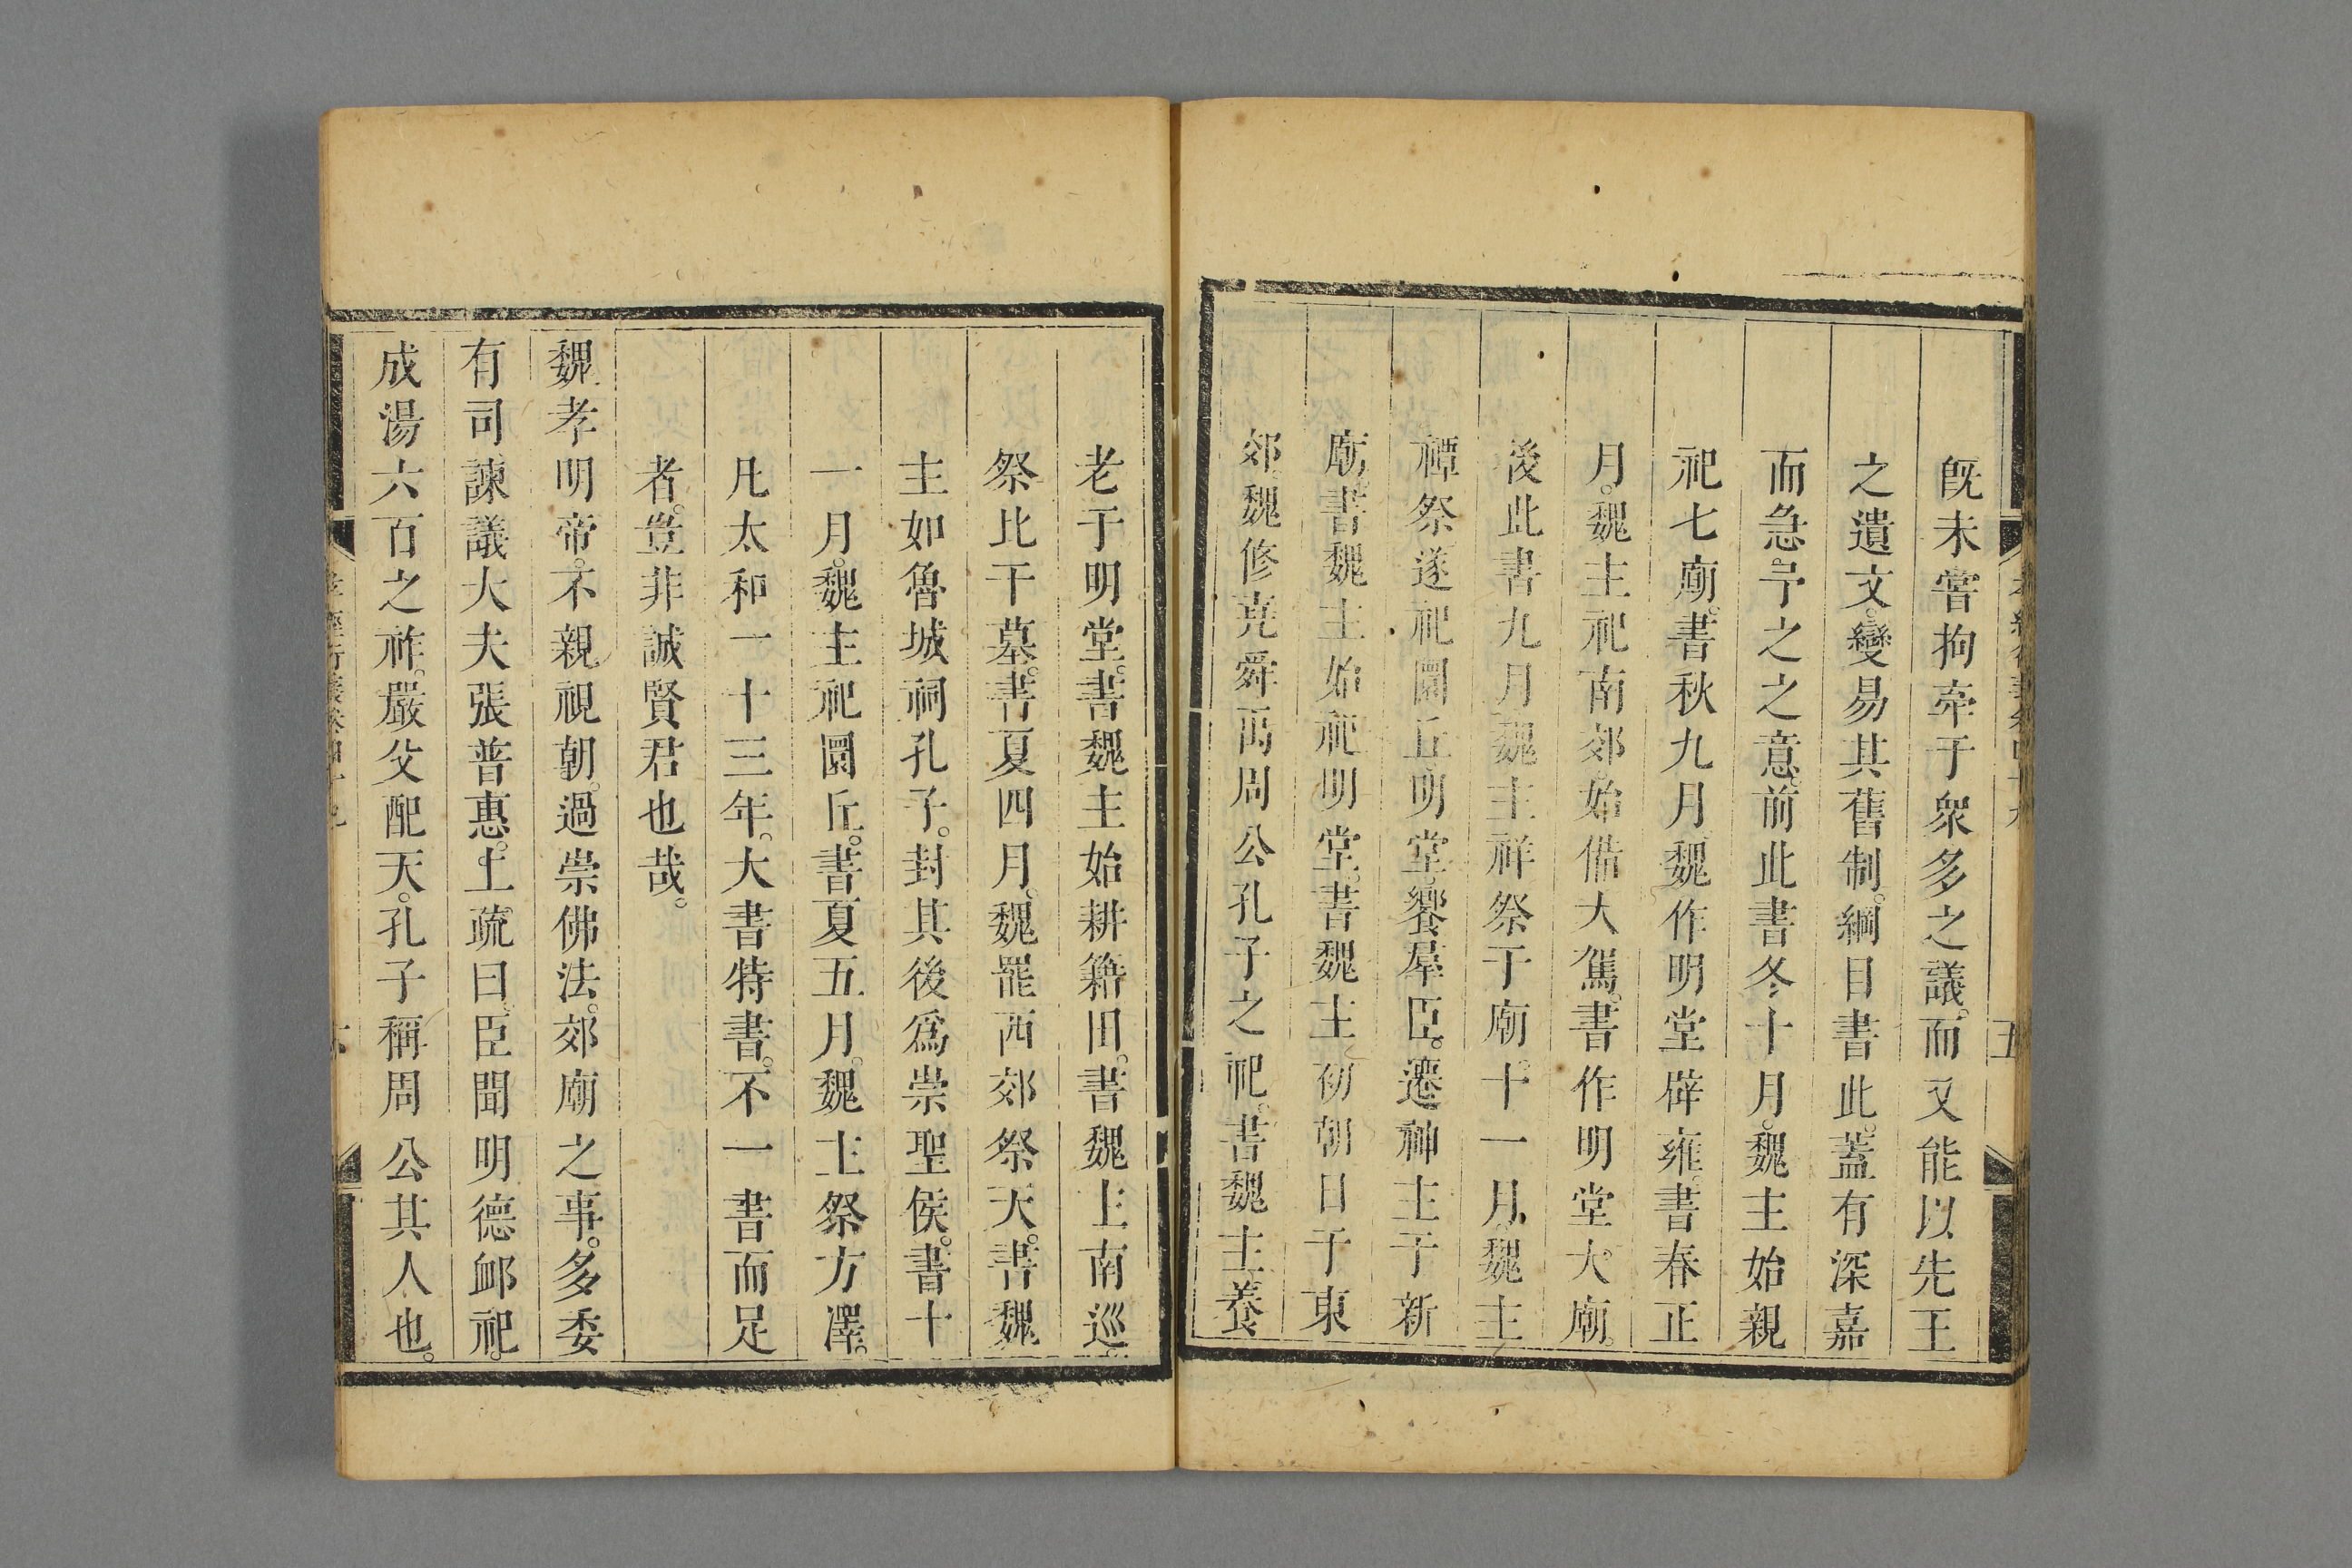 既未嘗拘牽于衆多之議。而又能以先王
之遺文。變易其舊制。綱目書此。蓋有深嘉
而急予之之意。前此書冬十月。魏主始親
祀七廟。書秋九月。魏作明堂辟雍。書春正
月。魏主祀南郊。始備大駕。書作明堂大廟。
後此書九月魏主祥祭于廟。十一月。魏主
禫祭遂祀圜丘明堂。饗羣臣。遷神主于新
廟。書魏主始祀明堂。書魏主初朝日于東
郊。魏修堯舜禹周公孔子之祀。書魏主養
老于明堂。書魏主始耕籍田。書魏主南巡。
祭比干墓。書夏四月。魏罷西郊祭天。書魏
主如魯城祠孔子。封其後爲崇聖侯。書十
一月。魏主祀圜丘。書夏五月。魏主祭方澤。
凡太和一十三年。大書特書。不一書而足
者。豈非誠賢君也哉。
魏孝明帝。不親視朝。過崇佛法。郊廟之事。多委
有司。諫議大夫張普惠。上疏曰。臣聞明德卹祀。
成湯六百之祚。嚴父配天。孔子稱周公其人也。